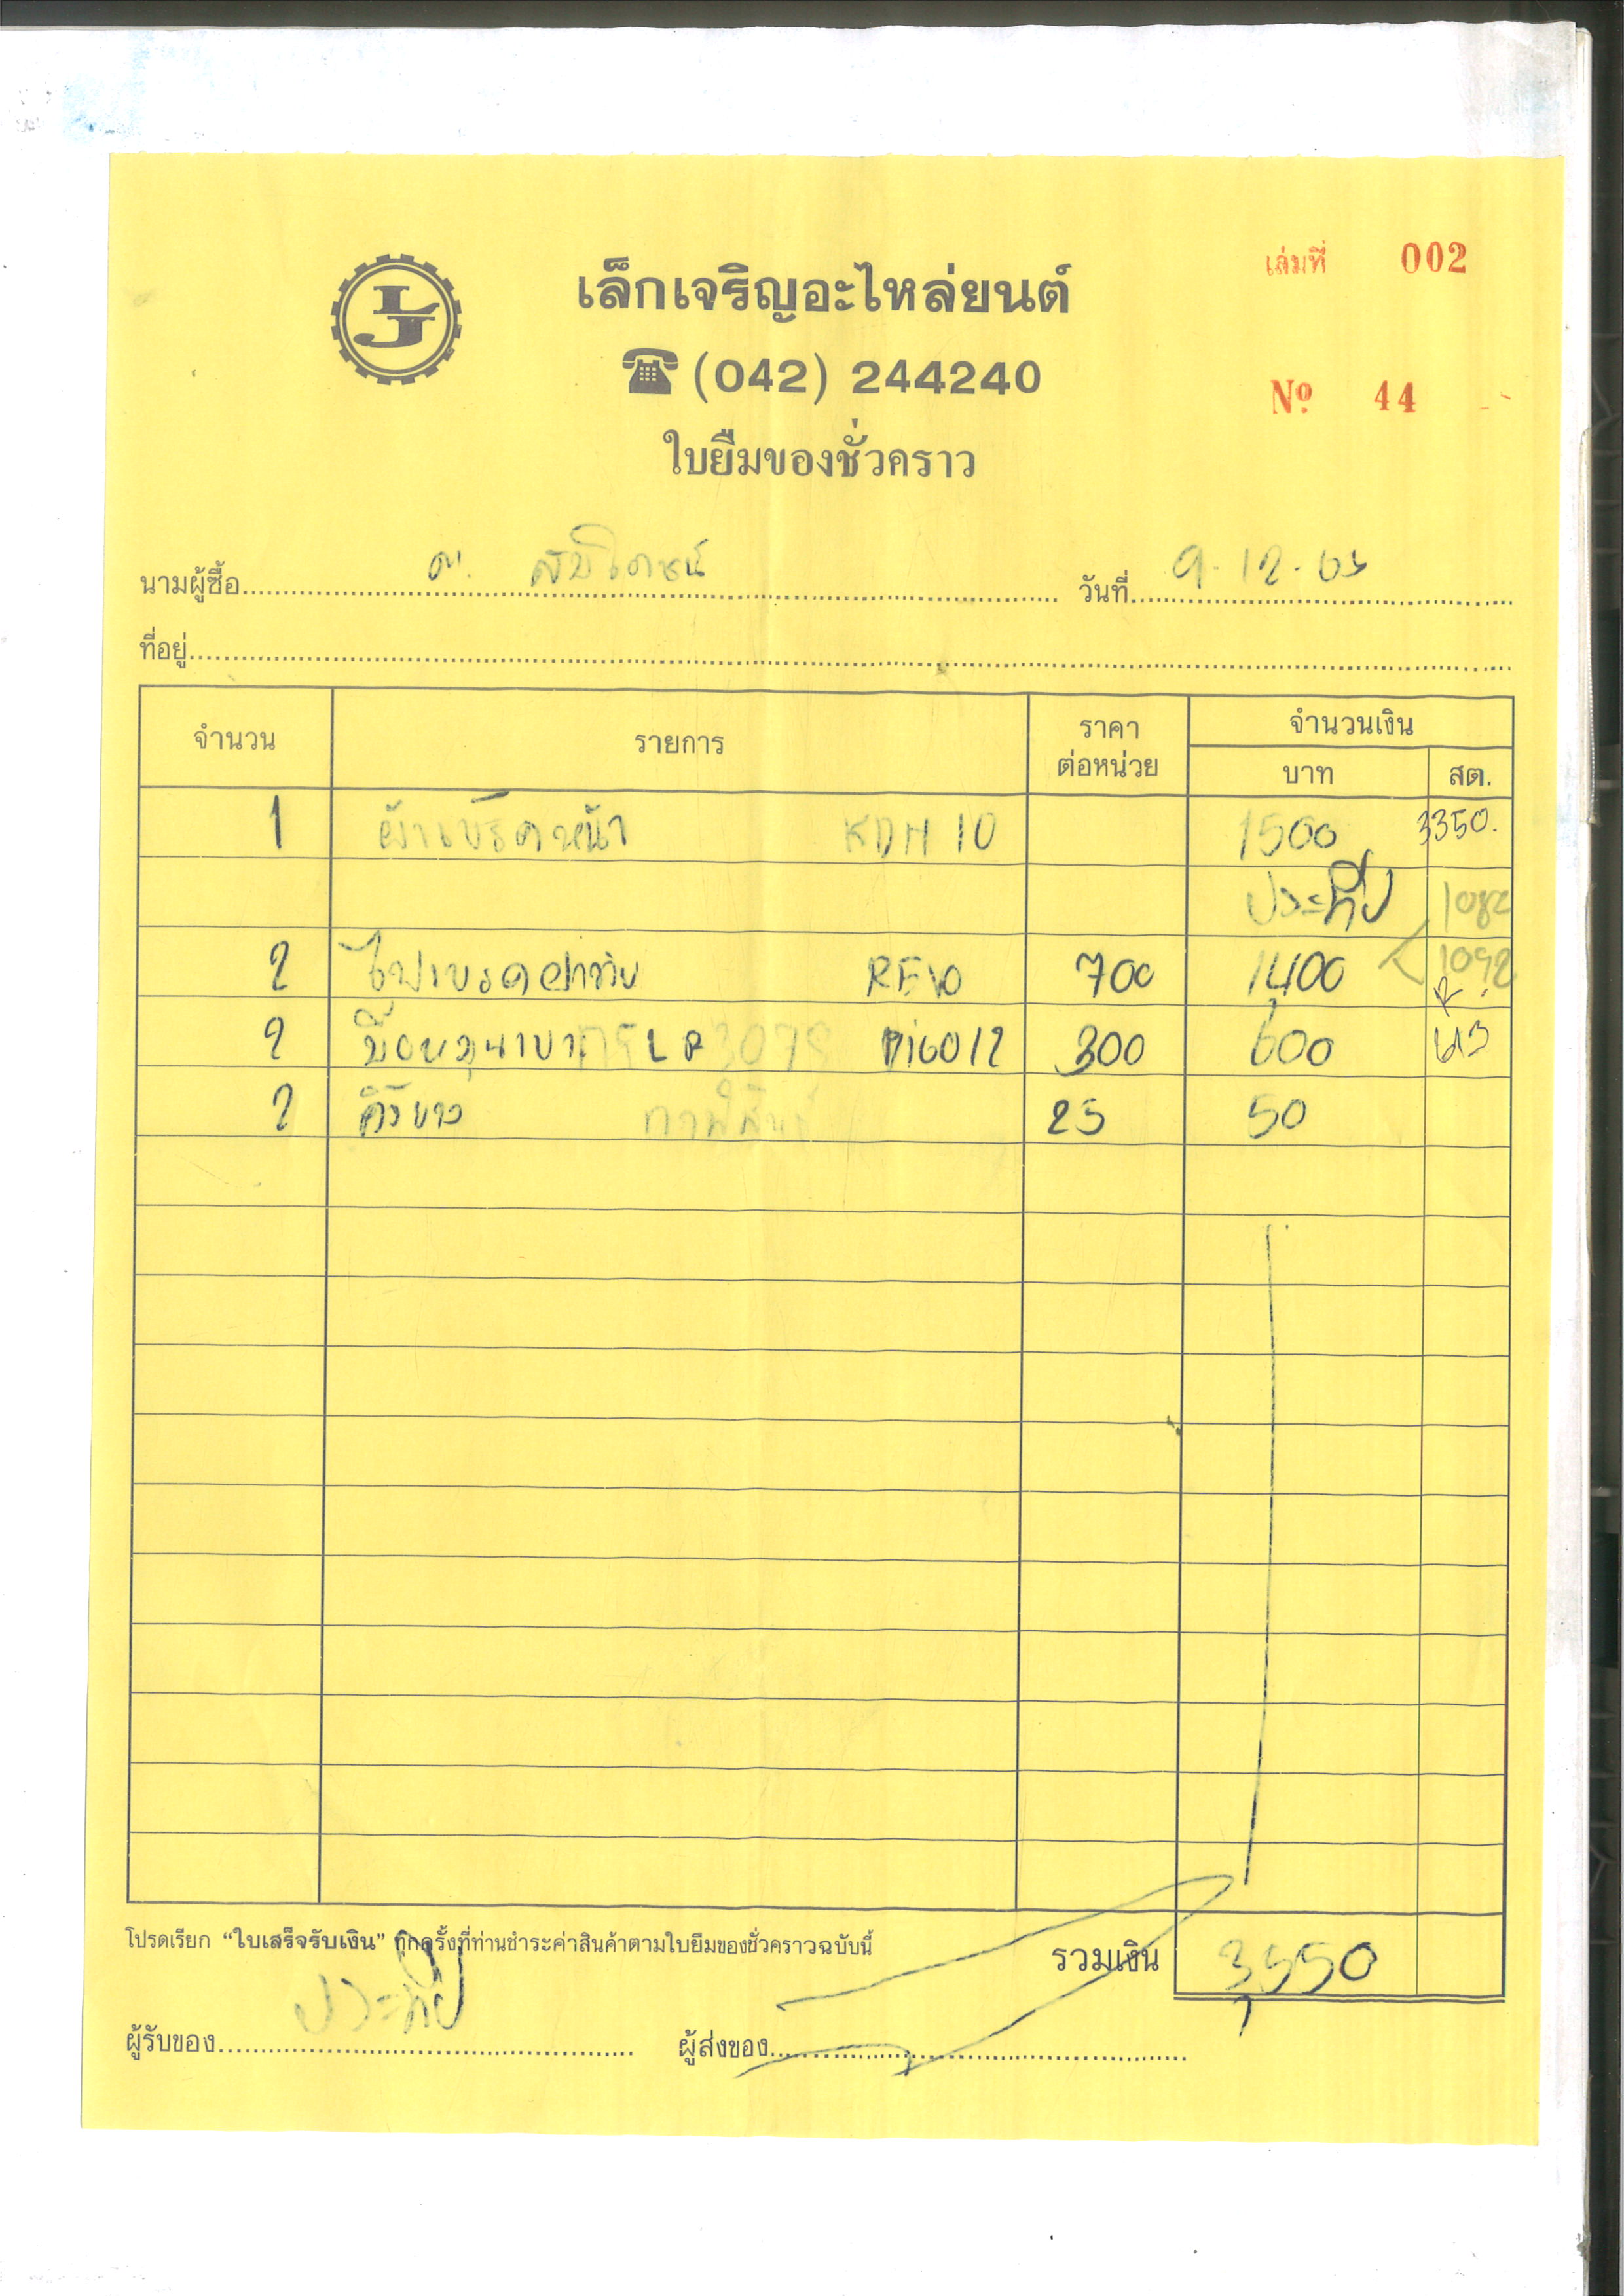 เล่มที่ 002
LJ
เล็กเจริญอะไหล่ยนต์
☎ (042) 244240
Nº 44
ใบยืมของชั่วคราว
นามผู้ซื้อ วันที่ 9.12.63
ที่อยู่
จำนวน รายการ ราคาต่อหน่วย จำนวนเงิน
บาท สต.
1 ผ้าเบรคหน้า KDH 10 1500 3350.
ประทีป
2 700 1,400 1092
2 LR 300 600
2 25 50
โปรดเรียก “ใบเสร็จรับเงิน” ทุกครั้งที่ท่านชำระค่าสินค้าตามใบยืมของชั่วคราวฉบับนี้
รวมเงิน 3,550
ผู้รับของ ประทีป ผู้ส่งของ